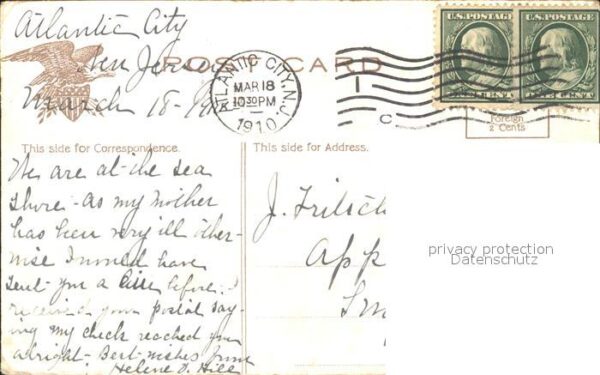 Atlantic City
New Jersey
March 18-1910
POST CARD
ATLANTIC CITY, N.J.
MAR 18
10:30 PM
1910
1
C
U.S. POSTAGE U.S. POSTAGE
Foreign
2 Cents
This side for Correspondence.
This side for Address.
We are at the sea
shore - as my mother
has been very ill other-
wise I would have
sent you a line before. I
received your postal say-
ing my check reached you
alright - Best wishes from
Helene D. Hill
J. Fritsch
App
Sm
privacy protection
Datenschutz